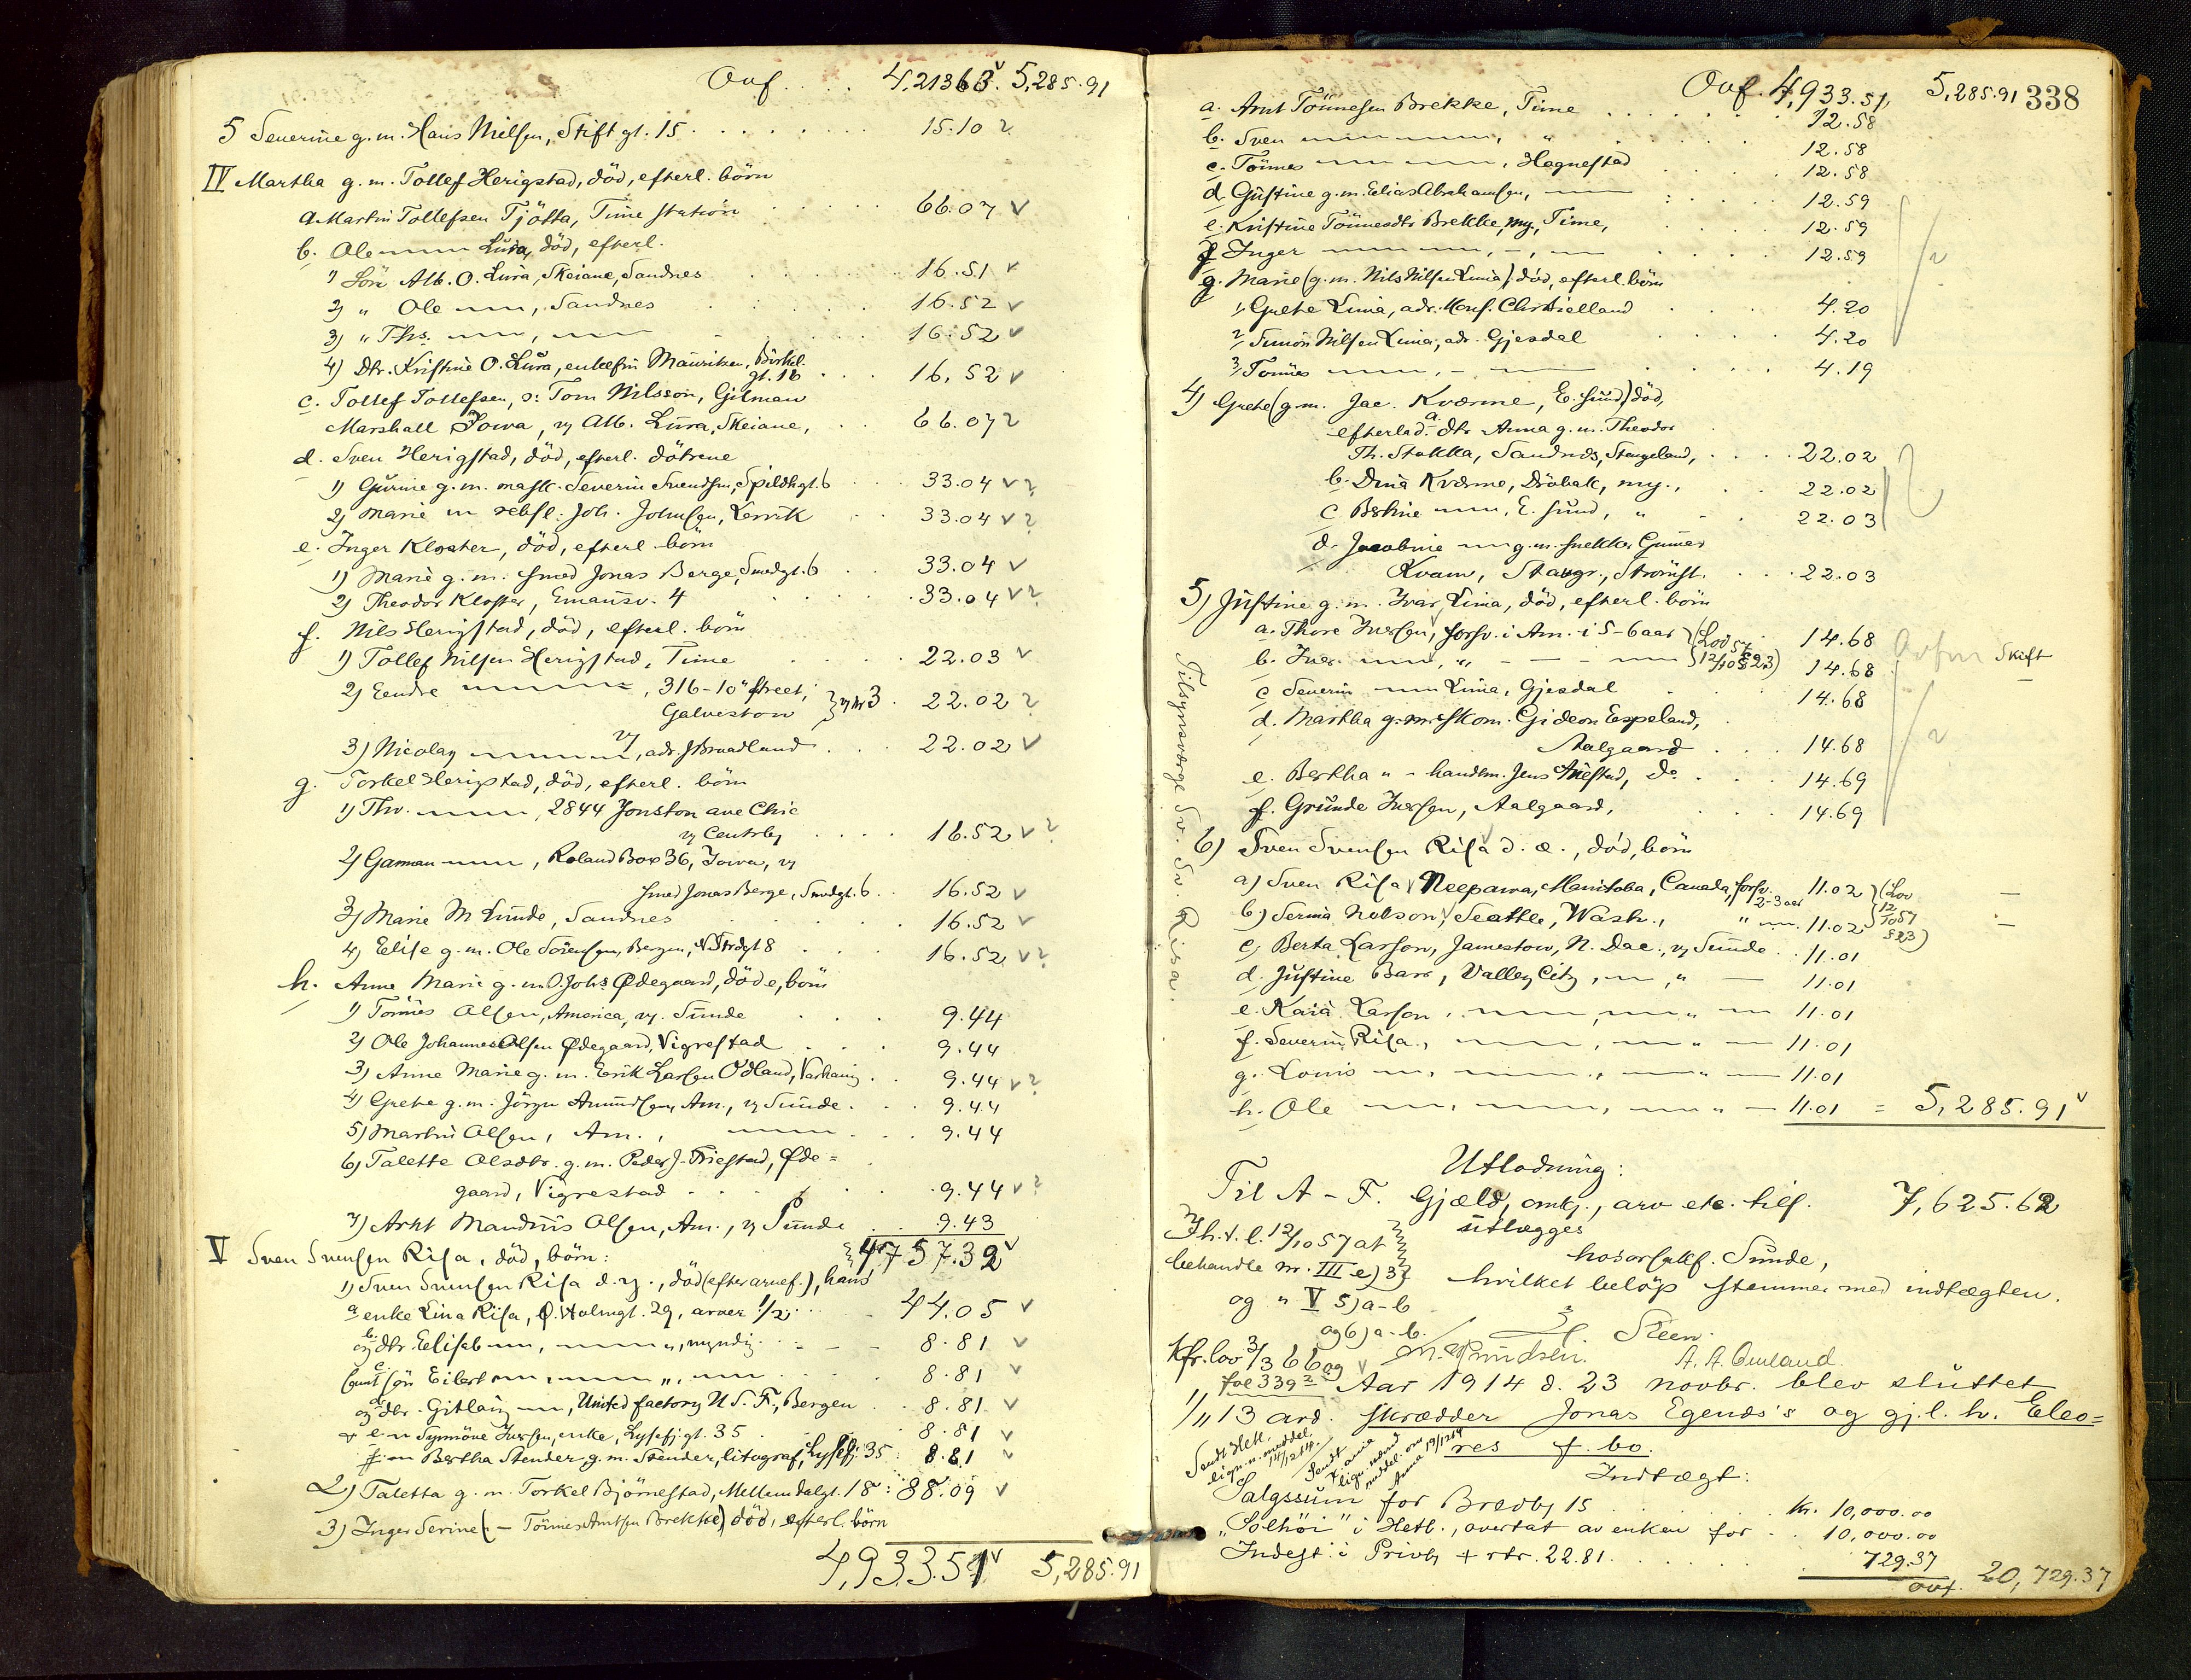 Ovf. . . . 4,21363. 5,285.91
5 Severine g.m. Hans Nielsen, Stiftgt. 15 . . . . 15.10
IV Martha g.m. Tollef Herigstad, död, efterl. börn
a Martin Tollefsen Tjötta, Time station . . . 66.07
b. Ole Lura, död, efterl.
1) Sön Alb. O. Lura, Skeiane, Sandnes . . . 16.51
2) " Ole, Sandnes . . . 16.52
3) " Ths. . . . 16.52
4) Dtr. Kristine O. Lura, enkefru Mauritzen, gt. 16 . . . 16.52
c. Tollef Tollefsen, o: Tom Nilsson, Gilman
Marshall Iowa, v/ Alb. Lura, Skeiane, . . 66.07 ?
d. Sven Herigstad, död, efterl. dötrene
1) Gurine g.m. mask. Severin Svendsen, Spildhgt. 6 . . 33.04 ?
2) Marie m rebsl. Joh. Johnsen, Lervik . . 33.04 ?
e. Inger Kloster, död, efterl. börn
1) Marie g.m. smed Jonas Berge, Smedgt. 6 . . 33.04
2) Theodor Kloster, Emausv. 4 . . . 33.04 ?
f. Nils Herigstad, död, efterl. börn
1) Tollef Nilsen Herigstad, Time . . . 22.03
2) Eendre, 316-10" street,
Galveston } v/ nr 3 . 22.02 ?
3) Nicolay, adr. J Braadland . . . 22.02
g. Torkel Herigstad, död, efterl. börn
1) Thv., 2844 Jonston ave Chic
v/ Centrbg . . . . 16.52 ?
2) Garman, Roland Box 36, Iowa, v/
smed Jonas Berge, Smedgt. 6 . . 16.52
3) Marie M Lunde, Sandnes . . . 16.52
4) Elise g.m. Ole Sörensen, Bergen, N. Strdgt 8 . . . 16.52 ?
h. Anne Marie g.m. O. Johs Ødegaard, döde, börn
1) Tönnes Olsen, America, v/ Sunde . . . 9.44
2) Ole Johannes Olsen Ødegaard, Vigrestad . . . 9.44
3) Anne Marie g.m. Erik Larsen Ödland, Varhaug . . 9.44 ?
4) Grethe g.m. Jörgen Amundsen, Am., v/ Sunde . . . 9.44
5) Martin Olsen, Am., . . . 9.44
6) Talette Olsdtr. g.m. Peder J. Friestad, Øde=
gaard, Vigrestad . . . . 9.44 ?
7) Arnt Mandrus Olsen, Am., v/ Sunde . . 9.43
4,757.32
V Sven Svensen Risa, död, börn:
1) Sven Svensen Risa d.y., död (efter arvef.), hans
a enke Lina Risa, Ø. Holmgt. 29, arver 1/2 . . . 44.05
b. og dtr. Elisab, ", myndig . . . 8.81
c. samt sön Eilert " . . . 8.81
d. og dtr. Gitlaug, United factory U.S.F., Bergen . . 8.81
e. " Synnöve Iversen, enke, Lysefj.gt. 35 . . . 8.81
f. " Bertha Stender, g.m. Stender, litograf, Lysefj. 35 : 8.81
2) Taletta g.m. Torkel Björnestad, Mellemdalgt. 18 : 88.09
3) Inger Serine (– Tönnes Arntsen Brekke) död, efterl. börn
4,933.51 5,285.91
Ovf. 4,933.51 5,285.91 338
a. Arnt Tönnesen Brekke, Time . . . 12.58
b. Sven, " . . . 12.58
c. Tönnes, Hognestad . . . 12.58
d. Gustine g.m. Elias Abrahamsen, . . . 12.59
e. Kristine Tönnesdtr Brekke, my., Time, . . . 12.59
f Inger . . . 12.59
g. Marie (g.m. Nils Nilsen Lima), död, efterl. börn
1, Grethe Lima, adr. Konf. Chr Bielland . . . 4.20
2, Simon Nilsen Lima, adr. Gjesdal . . . 4.20
3, Tönnes . . . 4.19
4) Grethe (g.m. Jac. Kværme, E.sund) död,
efterlod. a. dtr Anna g.m. Theodor
Th. Stokka, Sandnes, Stangeland, . . . 22.02
b. Dina Kværme, Dröbak, my., . . . 22.02
c, E.sund, " . . 22.03
d. Jacobine g.m. snekker Gunnar
Kvam, Stavgr., Strömst. . . . 22.03
5) Justine g.m. Ivar Lima, död, efterl. börn
a. Thore Iversen, forsv. i Am. i 5-6 aar } (Lov 14.68
b. Iver, " } 12/10 57 § 23) 14.68 Skift
c Severin Lima, Gjesdal . . . 14.68
d. Martha g.m. skom. Gideon Espeland,
Aalgaard . . . 14.68
e. Bertha " – handlm. Jens Auestad, do . . . 14.69
f. Grunde Iversen, Aalgaard, . . . 14.69
6) Sven Svensen Risa d.æ., död, börn
a) Sven Risa, Neepawa, Manitoba, Canada, forsv. 2-3 aar 11.02 } (Lov
b) Serina Nelson, Seattle, Wash., " 11.02 } 12/10 57 § 23)
c, Berta Larson, Jamestow, N. Dac., v/ Sunde . . 11.01
d. Justine Barr, Valley City, " 11.01
e. Kaia Larson, " 11.01
f. Severin Risa, " 11.01
g. Louis " 11.01
h. Ole " 11.01 = 5,285.91
Tilsynsværge Sv. Sv. Risa.
Utlodning:
Til A – F. Gjæld, omk., arv etc. tils. 7,625.62
utlægges
hos orsakf. Sunde,
hvilket belöp stemmer med indtægten.
Ih.t. l. 12/10 57 at
behandle nr. III e) 3)
og " V 5) a-b
og 6) a-b.
Steen.
A. A. Omland.
Kfr. lov 3/3 66 og
fol 339
Aar 1914 d. 23 novbr. blev sluttet
1/11 13 ard. skrædder Jonas Egends's og gj.l. h. Eleo=
res f. bo.
Sendt Hetl. lign.n. meddel. 14/12 14.
Sendt
Indtægt:
Salgssum for Bredbg 15 . . . kr. 10,000.00
"Solhöi" i Hetl., overtat av enken for . . 10,000.00
Indest. i Privbg + rtr. 22.81 . . . 729.37
ovf. 20,729.37